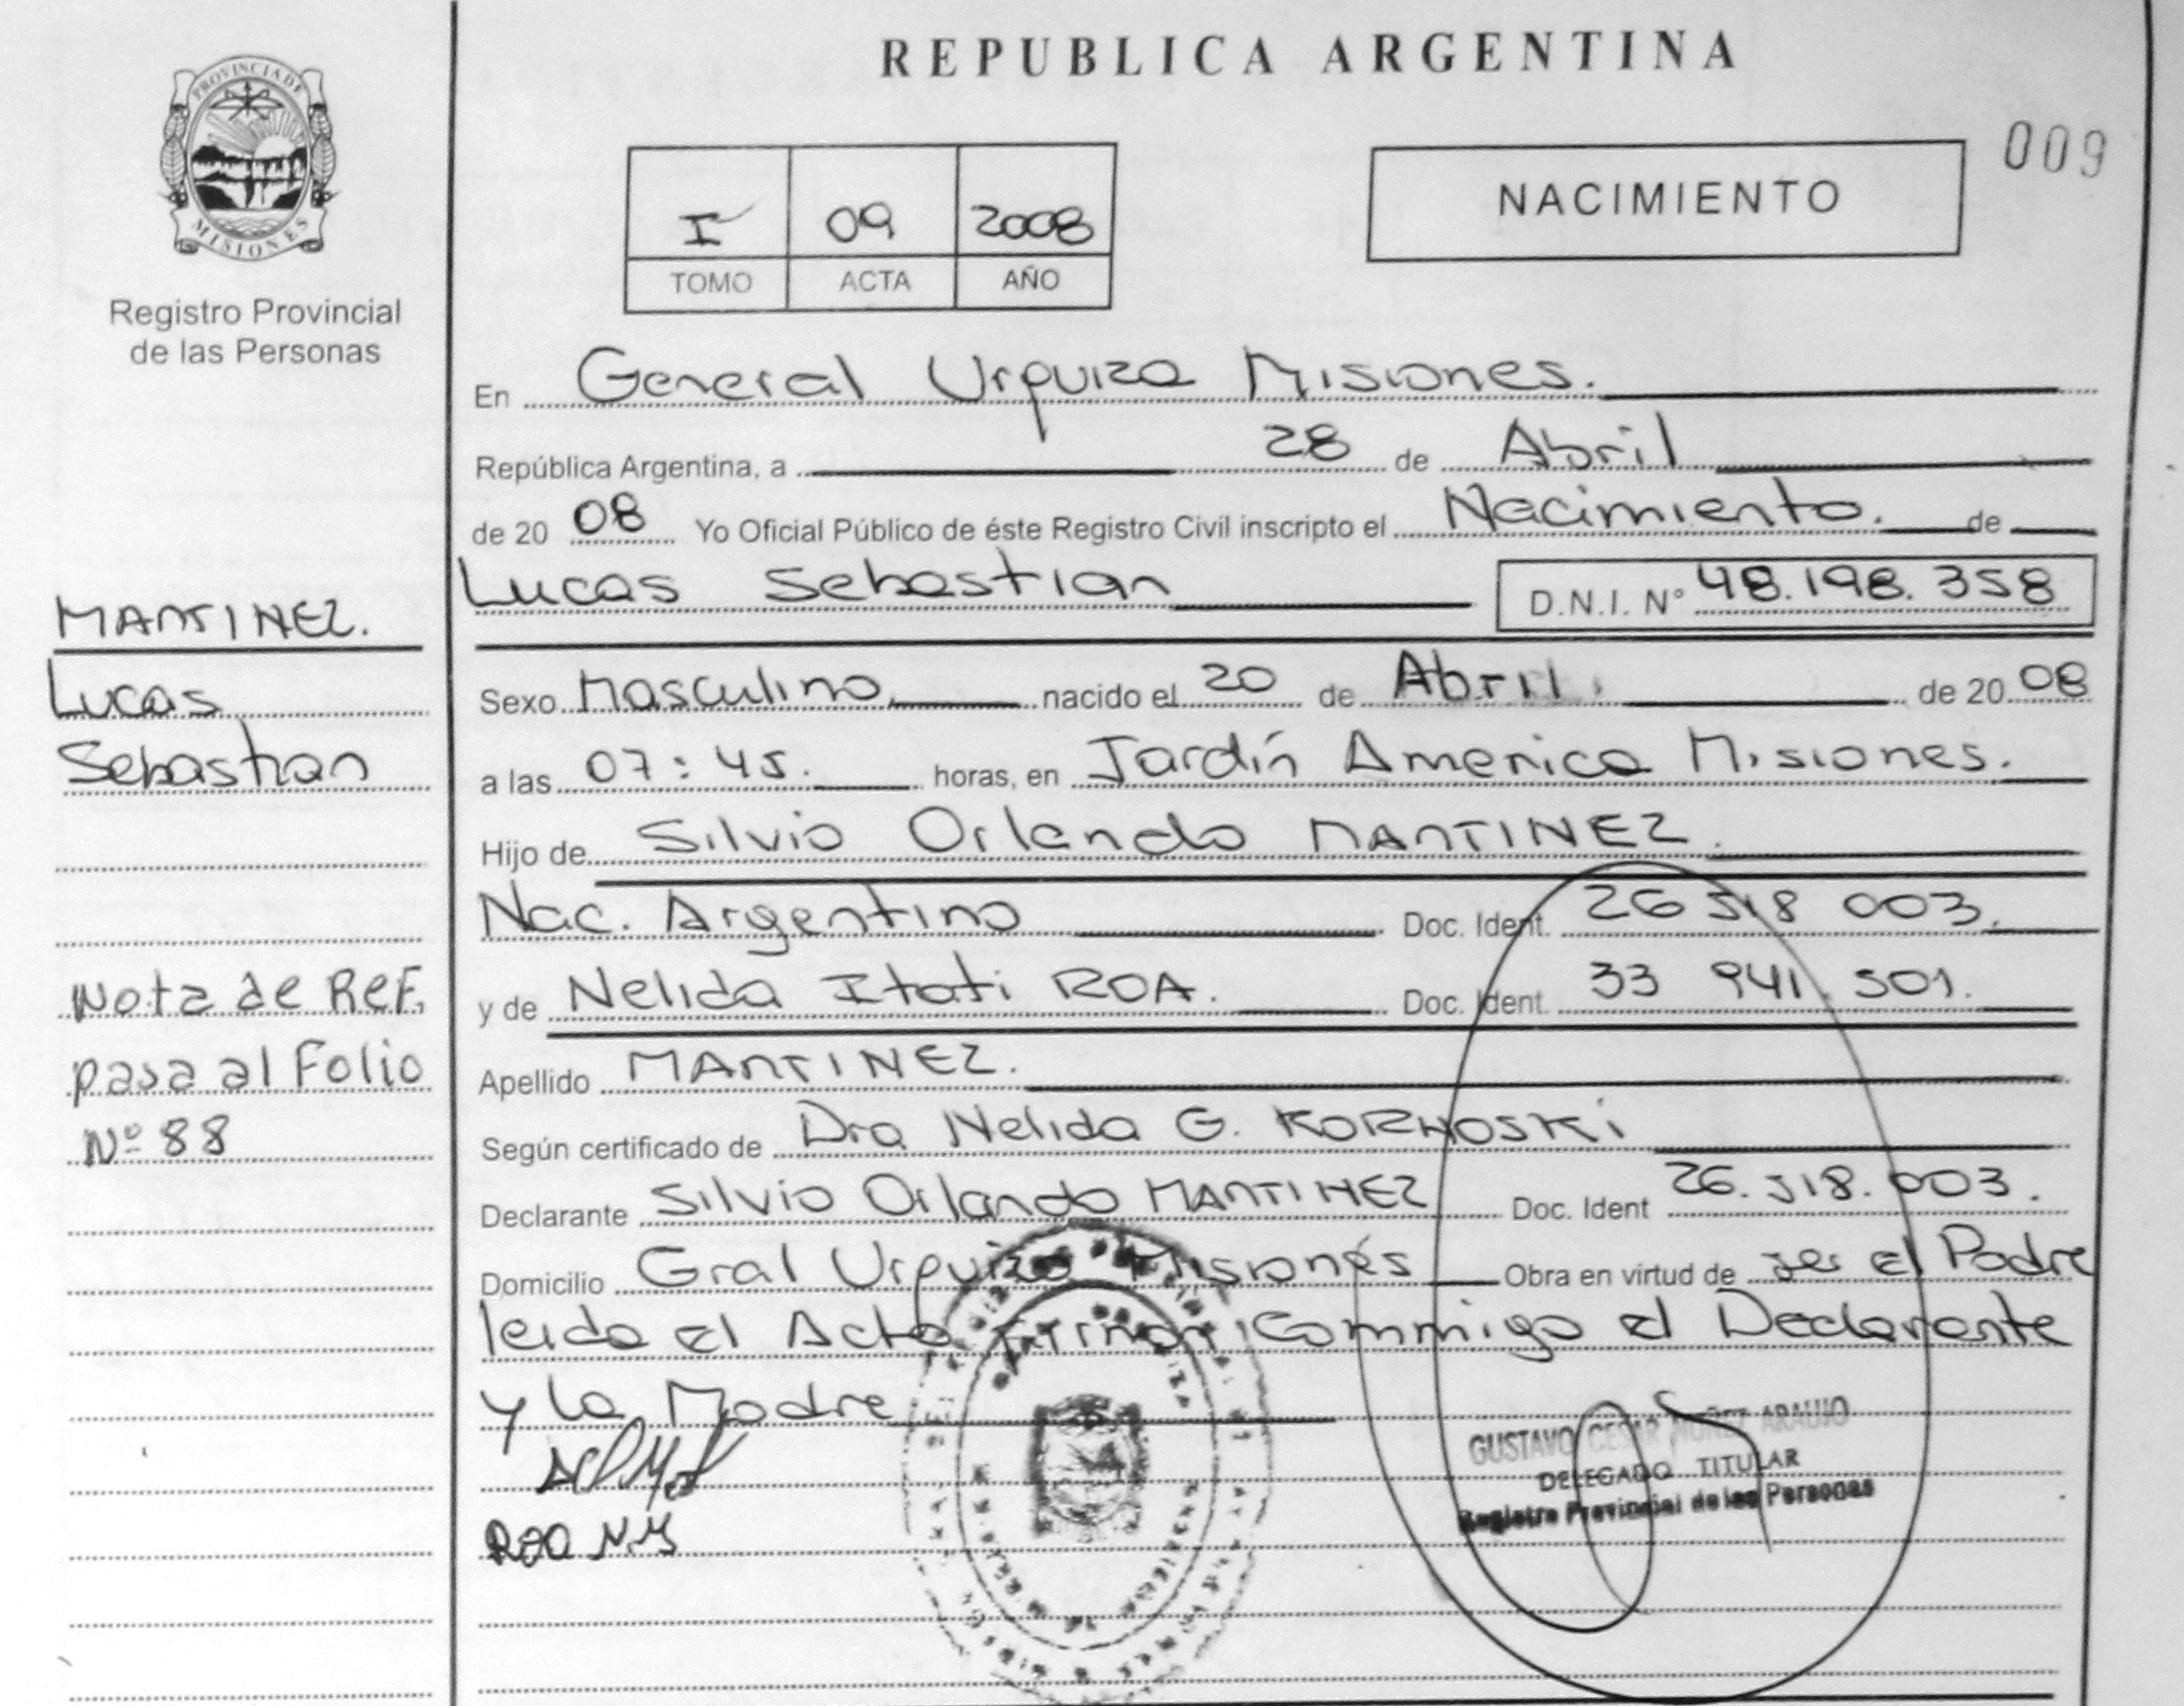 REPUBLICA ARGENTINA
PROVINCIA DE
MISIONES
Registro Provincial
de las Personas
I 09 2008
TOMO ACTA AÑO
NACIMIENTO
009
En General Urquiza Misiones.
República Argentina, a 28 de Abril
de 20 08 Yo Oficial Público de éste Registro Civil inscripto el Nacimiento. de
Lucas Sebastian D.N.I. N° 48.198.358
MARTINEZ.
Lucas
Sebastian
Nota de REF.
pasa al Folio
Nº 88
Sexo Masculino nacido el 20 de Abril de 20 08
a las 07:45. horas, en Jardín America Misiones.
Hijo de Silvio Orlando MARTINEZ
Nac. Argentino Doc. Ident. 26 518 003.
y de Nelida Itati ROA. Doc. Ident. 33 941.501.
Apellido MARTINEZ.
Según certificado de Dra Nelida G. KORNOSKi
Declarante Silvio Orlando MARTINEZ Doc. Ident 26.518.003.
Domicilio Gral Urquiza Misiones Obra en virtud de ser el Padre
leida el Acta Firman Commigo el Declarante
y la Madre
ROA N.Y
GUSTAVO CESAR NUÑEZ ARAUJO
DELEGADO TITULAR
Registro Provincial de las Personas